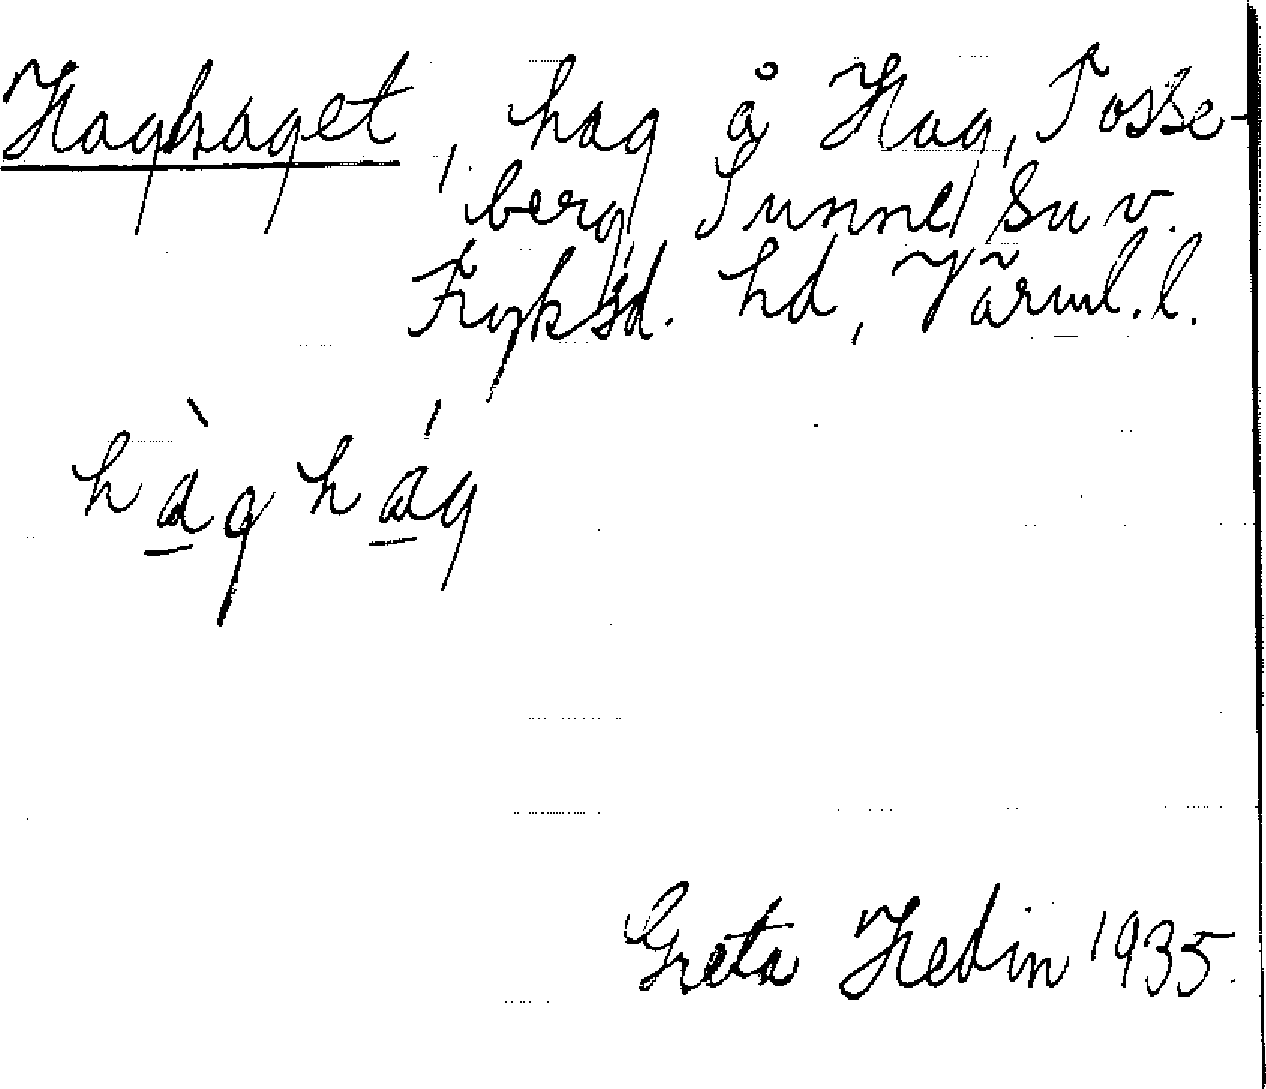 Haghaget, hag å Hag, Tosse-
berg, Sunne, Su v.
Fryksd. hd, Värml. l.
hàg hág
Greta Hedin 1935.